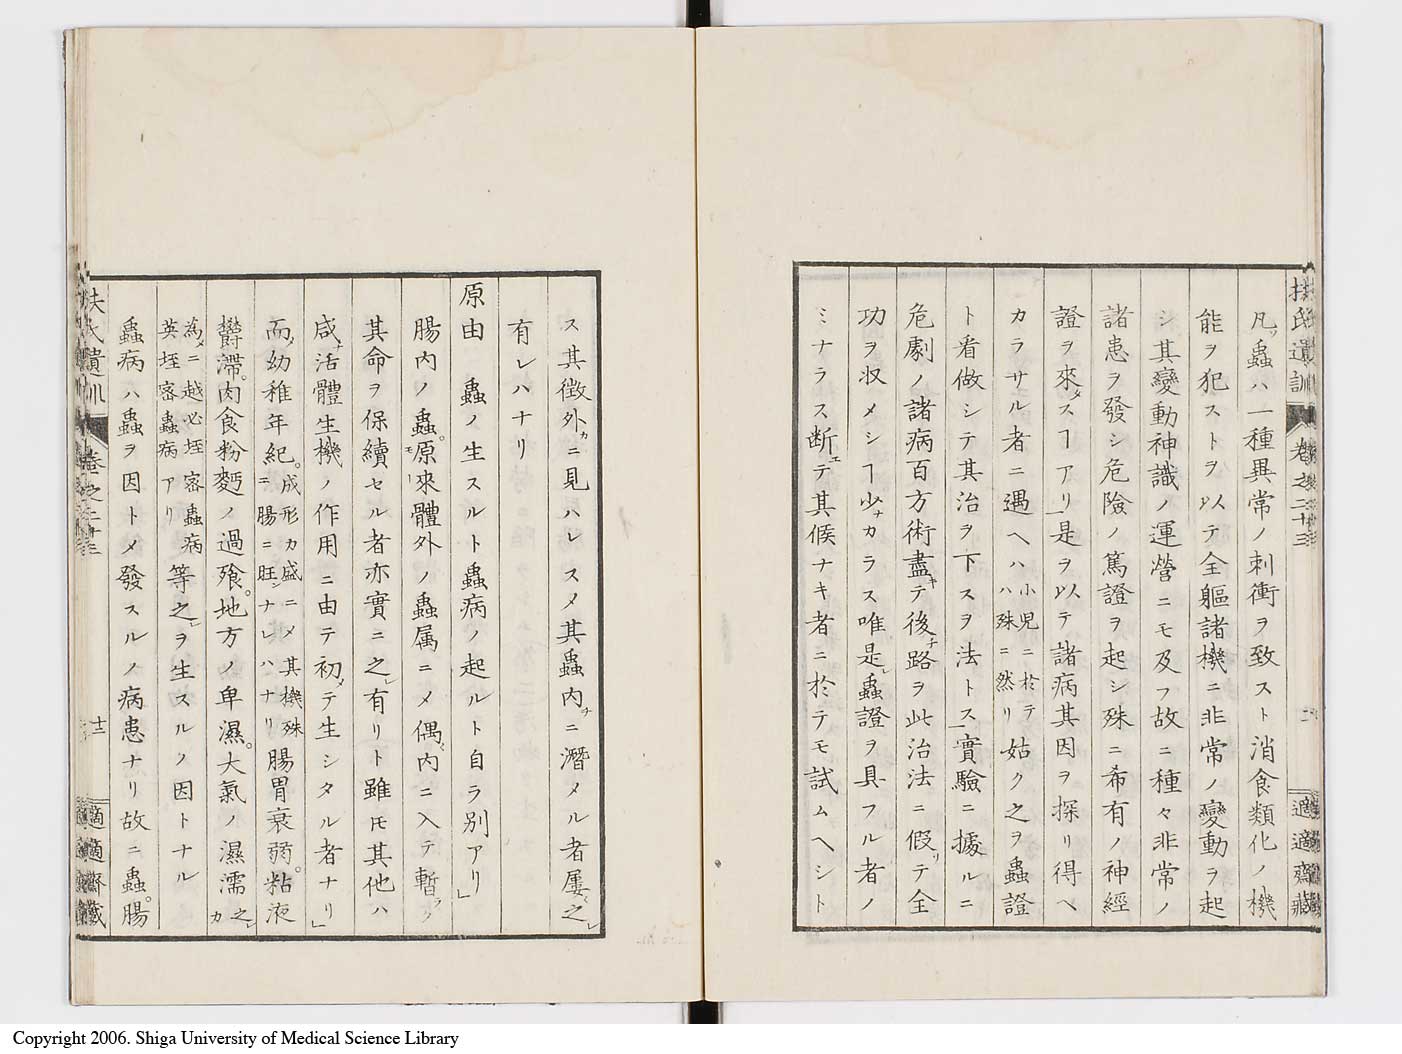 扶氏遺訓 卷之二十三 二 適適齋藏
凡ソ蟲ハ一種異常ノ刺衝ヲ致スト消食類化ノ機
能ヲ犯ストヲ以テ全軀諸機ニ非常ノ變動ヲ起
シ其變動神識ノ運營ニモ及フ故ニ種々非常ノ
諸患ヲ發シ危險ノ篤證ヲ起シ殊ニ希有ノ神經
證ヲ來タスヿアリ」是ヲ以テ諸病其因ヲ探リ得ヘ
カラサル者ニ遇ヘハ小兒ニ於テハ殊ニ然リ姑ク之ヲ蟲證
ト看做シテ其治ヲ下スヲ法トス」實驗ニ據ルニ
危劇ノ諸病百方術盡キテ後チ路ヲ此治法ニ假リテ全
功ヲ収メシヿ少ナカラス唯是レ蟲證ヲ具フル者ノ
ミナラス断エテ其候ナキ者ニ於テモ試ムヘシト
ス其徴外カニ見ハレスメ其蟲内チニ潛メル者屢之レ
有レハナリ
原由 蟲ノ生スルト蟲病ノ起ルト自ラ別アリ」
腸内ノ蟲。原來體外ノ蟲属ニメ偶内ニ入テ暫ラク
其命ヲ保續セル者亦實ニ之レ有リト雖モ其他ハ
咸ナ活體生機ノ作用ニ由テ初メテ生シタル者ナリ」
而メ幼稚年紀。成形力盛ニメ其機殊ニ腸ニ旺シナレハナリ腸胃衰弱。粘液
欝滯。肉食粉麪ノ過飱。地方ノ卑濕。大氣ノ濕濡之レカ
為メニ越必垤蜜蟲病英垤蜜蟲病アリ等之レヲ生スルノ因トナル
蟲病ハ蟲ヲ因トメ發スルノ病患ナリ故ニ蟲。腸
扶氏遺訓 卷之二十三 十二 適適齋藏
Copyright 2006. Shiga University of Medical Science Library